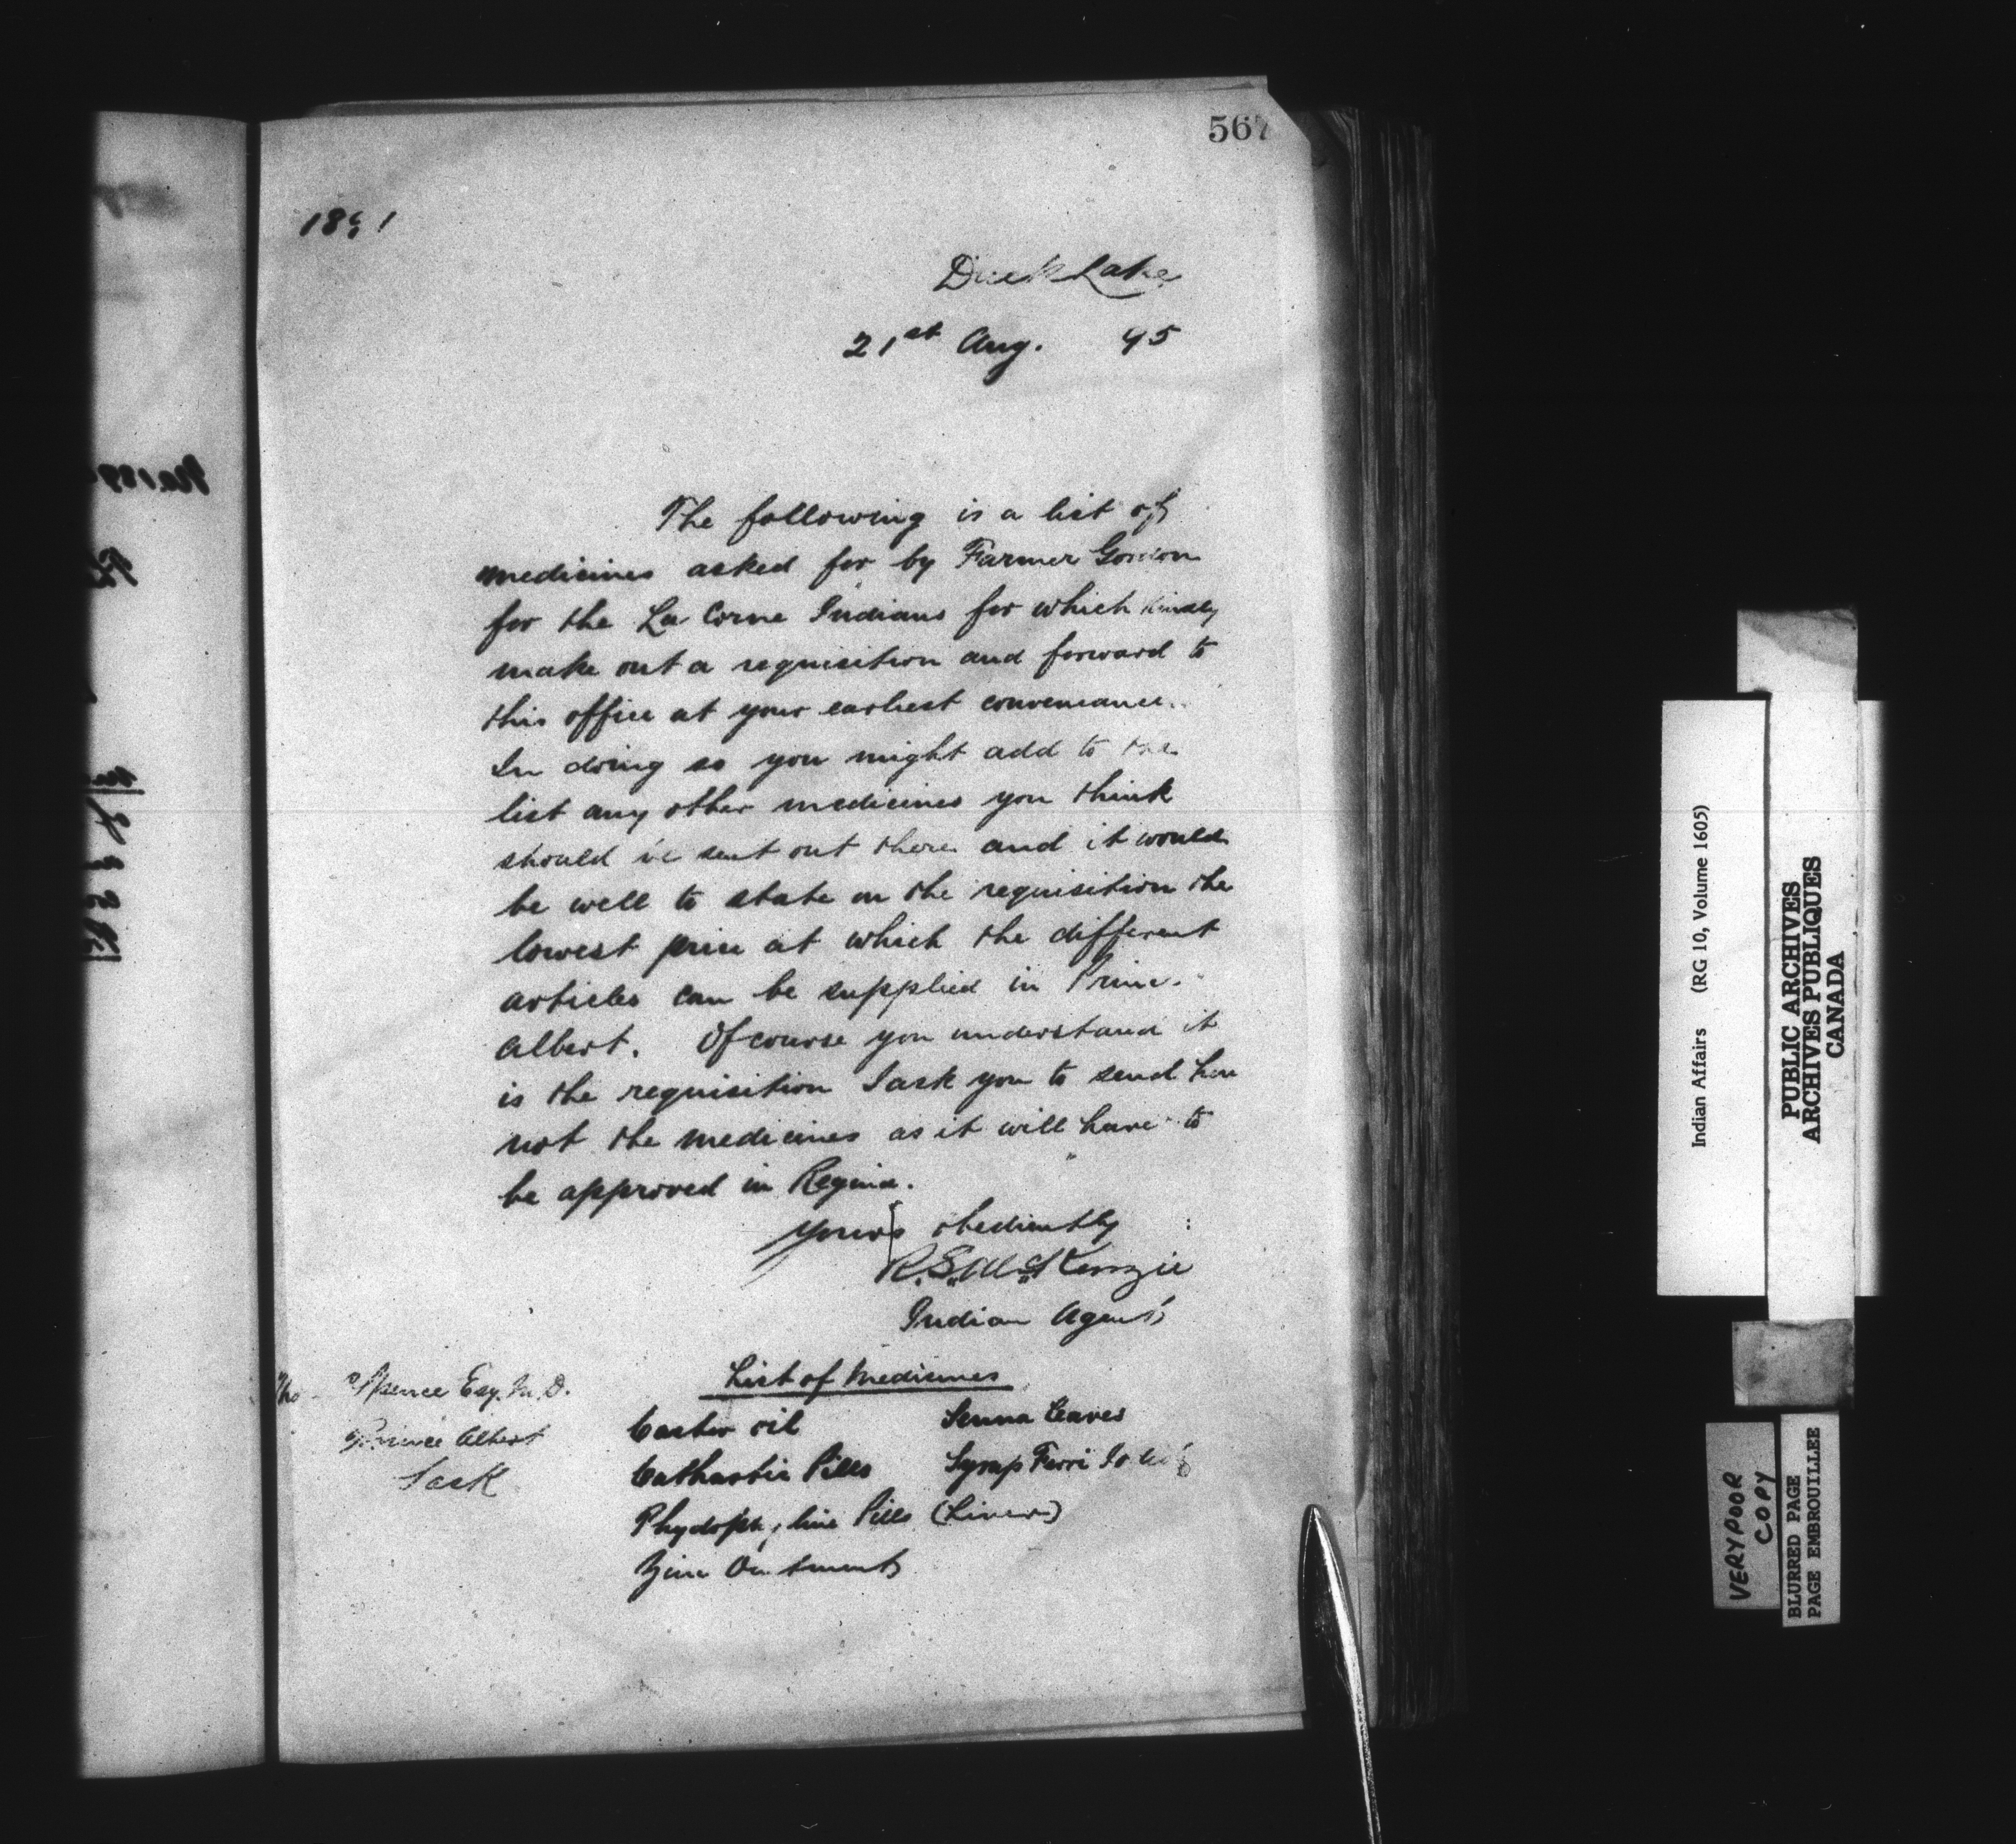 567
Duck Lake
21st Aug. 95
The following is a list of
medicines asked for by Farmer Gordon
for the La Corne Indians for which kindly
make out a requisition and forward to
this office at your earliest convenience.
In doing so you might add to the
list any other medicines you think
should be sent out there and it would
be well to state on the requisition the
lowest price at which the different
articles can be supplied in Prince
Albert. Of course you understand it
is the requisition I ask you to send here
not the medicines as it will have to
be approved in Regina.
Yours obediently
R.S. McKenzie
Indian Agent
Spence Esq. M.D.
Prince Albert
Sask
List of Medicines
Castor oil Senna Leaves
Cathartic Pills Syrup Ferri
Pills (Liver)
Zinc Ointment
Indian Affairs (RG 10, Volume 1605)
PUBLIC ARCHIVES
ARCHIVES PUBLIQUES
CANADA
VERY POOR
COPY
BLURRED PAGE
PAGE EMBROUILLEE